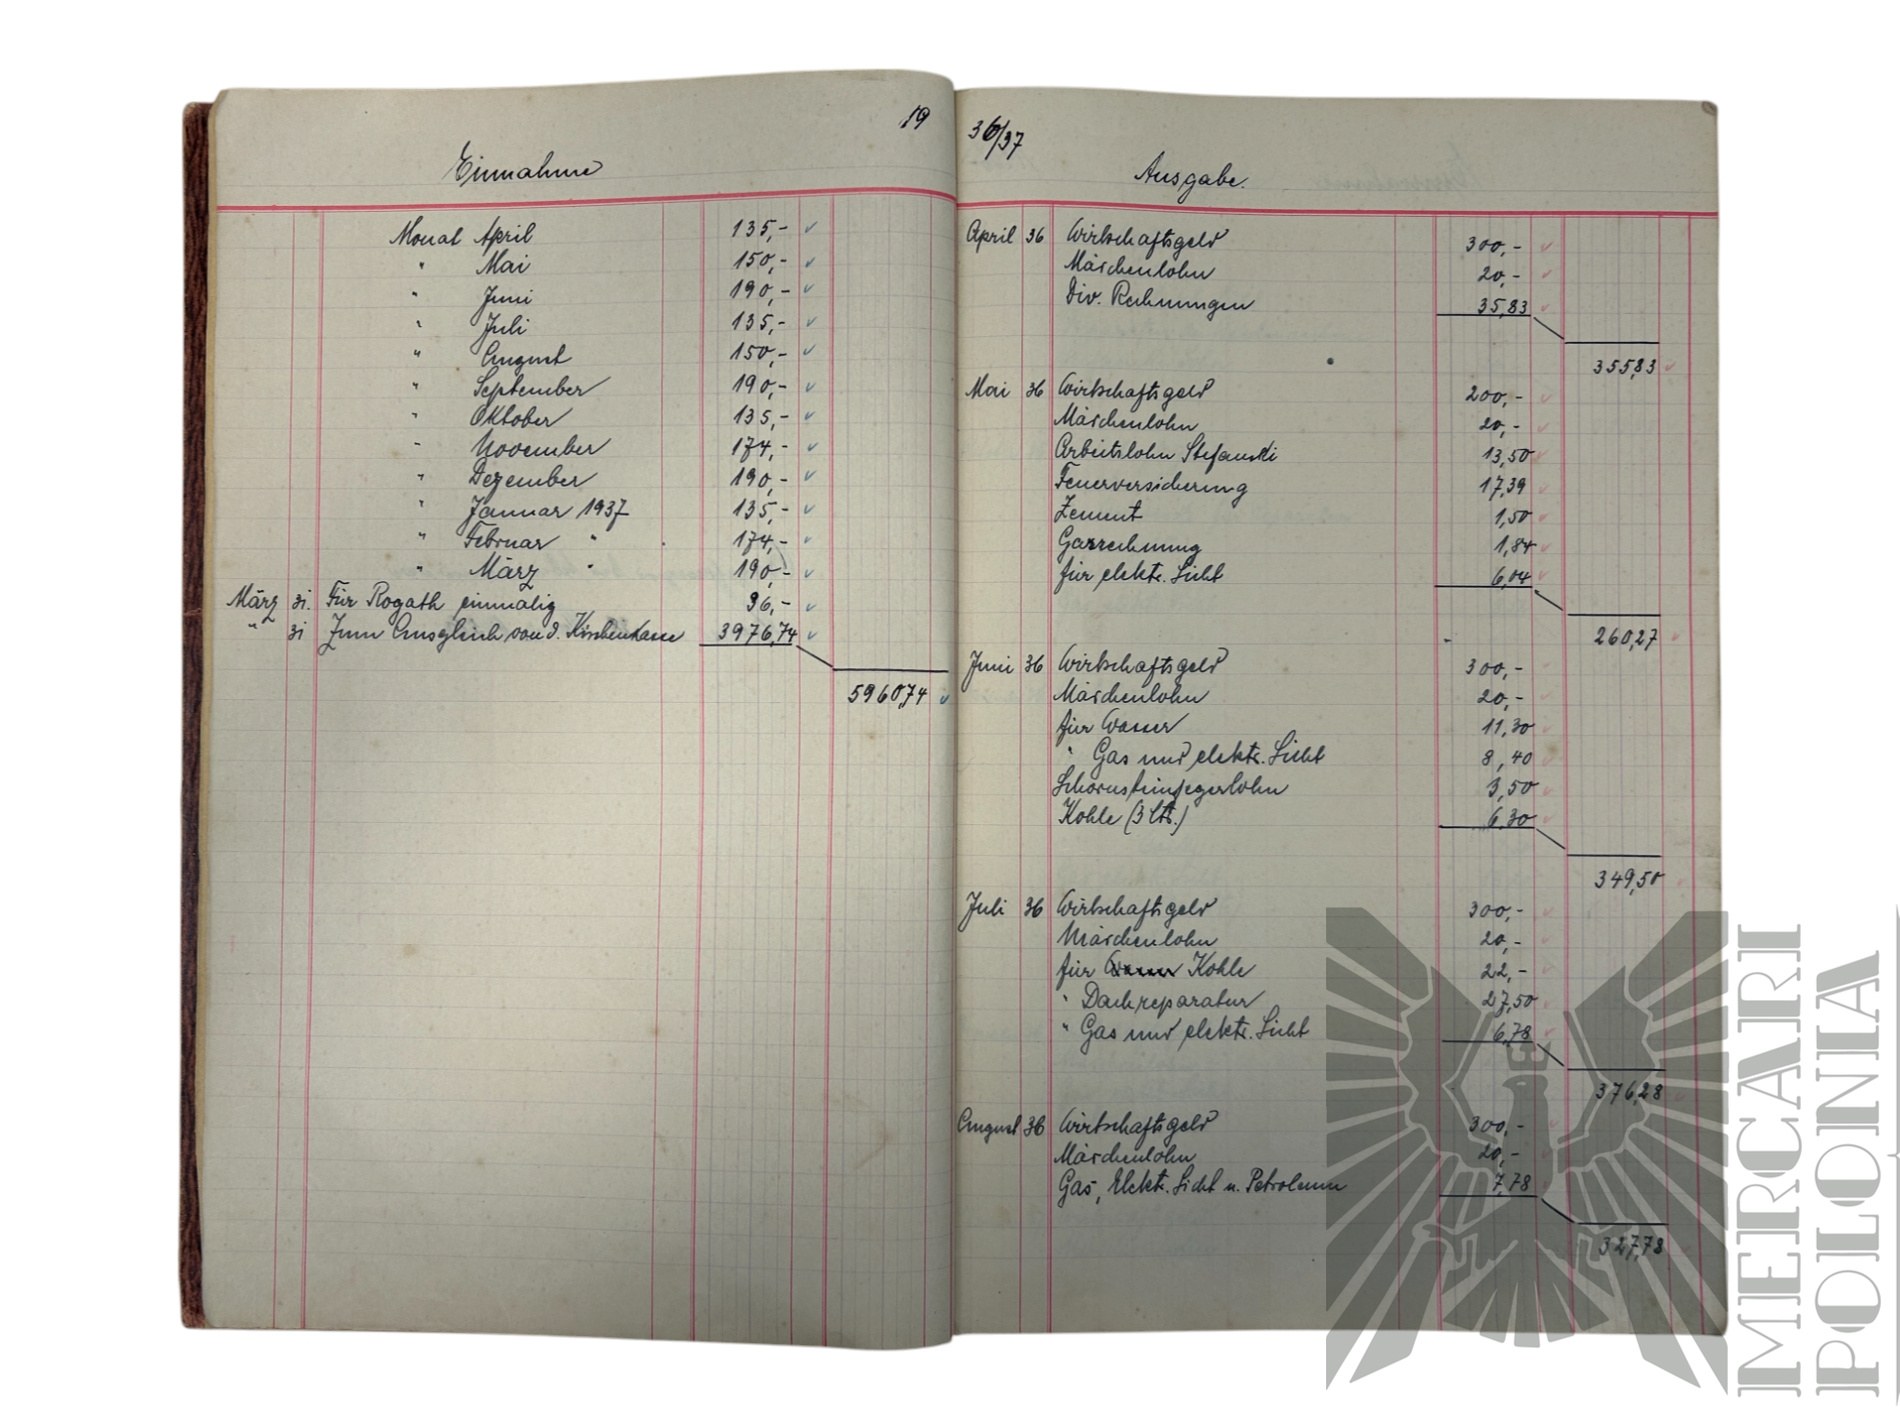 19
Einnahme
Monat April 135,-
" Mai 150,-
" Juni 190,-
" Juli 135,-
" August 150,-
" September 190,-
" Oktober 135,-
" November 174,-
" Dezember 190,-
" Januar 1937 135,-
" Februar " 174,-
" März " 190,-
März 31. Für Rogath einmalig 36,-
" 31 Zum Ausgleich von d. Kirchenkasse 3976,74
5960,74
36/37
Ausgabe.
April 36 Wirtschaftsgeld 300,-
Mädchenlohn 20,-
Div. Rechnungen 35,83
355,83
Mai 36 Wirtschaftsgeld 200,-
Mädchenlohn 20,-
Arbeitslohn Stefanski 13,50
Feuerversicherung 17,39
Zement 1,50
Gasrechnung 1,84
für elektr. Licht 6,04
260,27
Juni 36 Wirtschaftsgeld 300,-
Mädchenlohn 20,-
für Wasser 11,30
" Gas und elektr. Licht 8,40
Schornsteinfegerlohn 3,50
Kohle (3 Ctr.) 6,30
349,50
Juli 36 Wirtschaftsgeld 300,-
Mädchenlohn 20,-
für Kohle 22,-
" Dachreparatur 27,50
" Gas und elektr. Licht 6,78
376,28
August 36 Wirtschaftsgeld 300,-
Mädchenlohn 20,-
Gas, Elektr. Licht u. Petroleum 7,78
327,78
MERCARI
POLONIA